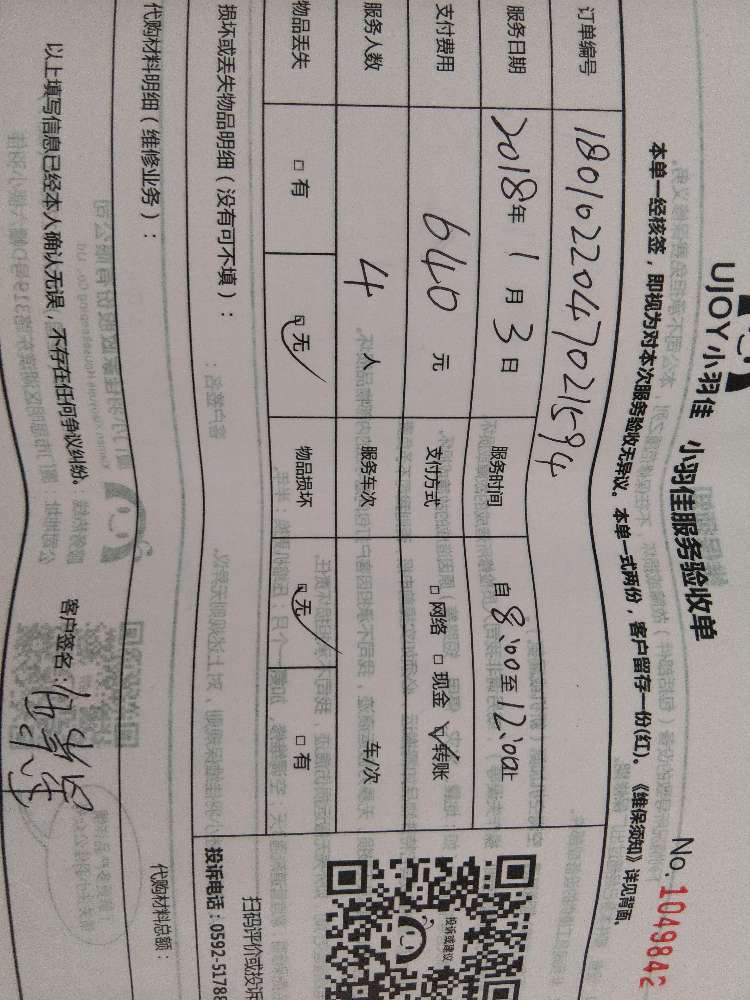 UJOY小羽佳 小羽佳服务验收单
No. 1049842
本单一经核签，即视为对本次服务验收无异议。本单一式两份，客户留存一份(红)。《维保须知》详见背面。
订单编号 1801022047021594
服务日期 2018年1月3日 服务时间 自8:00至12:00止
支付费用 640元 支付方式 □网络 □现金 ☑转账
服务人数 4人 服务车次 车/次
物品丢失 □有 ☑无 物品损坏 ☑无 □有
损坏或丢失物品明细（没有可不填）：
代购材料明细（维修业务）：
代购材料总额：
以上填写信息已经本人确认无误，不存在任何争议纠纷。
客户签名：
投诉或建议
扫码评价或投诉
投诉电话：0592-51788